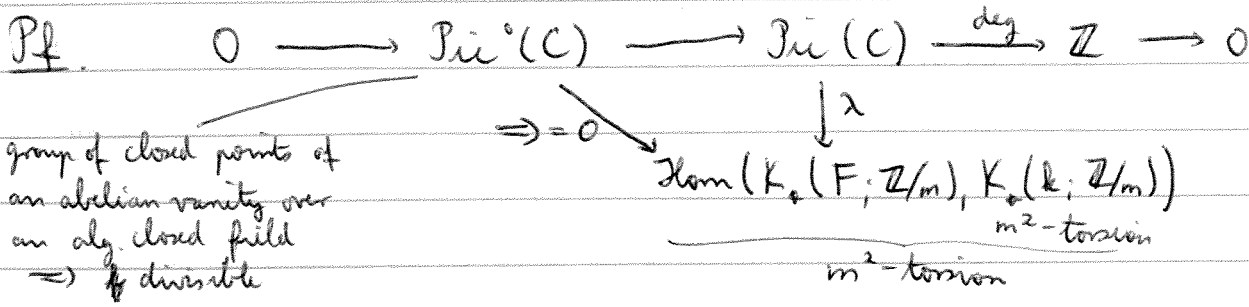 Pf. 0 → Pic°(C) → Pic(C) deg→ ℤ → 0
↓ λ
⇒ = 0
group of closed points of
an abelian variety over
an alg. closed field
⇒ divisible
Hom(K_*(F; ℤ/m), K_*(k; ℤ/m))
m²-torsion
m²-torsion